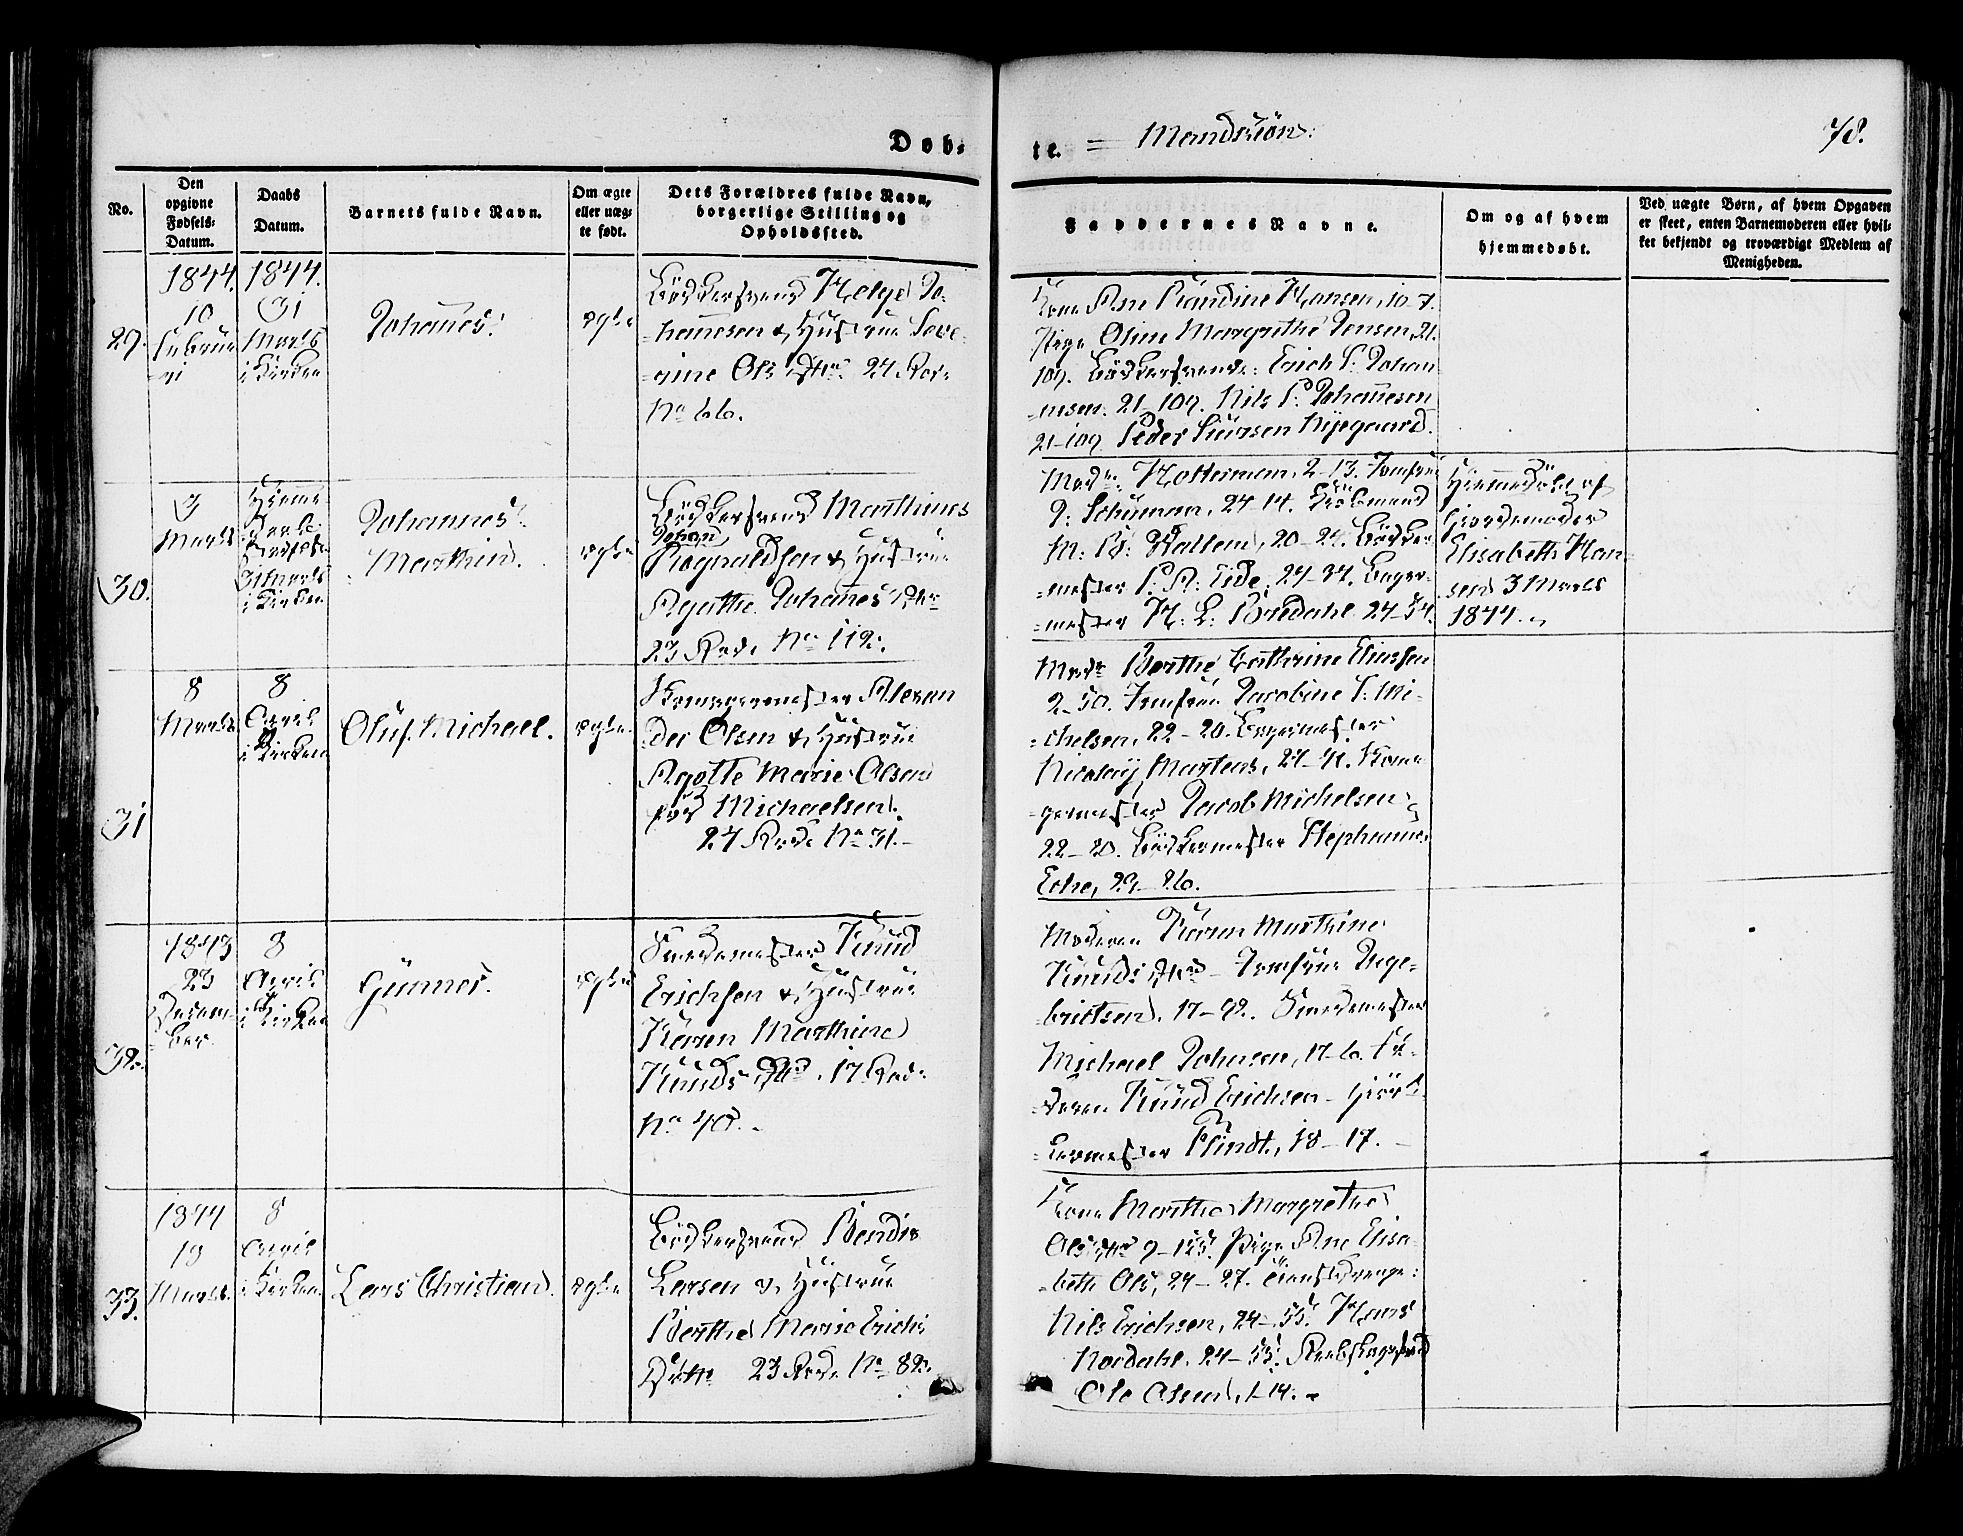 Døb-
te. = Mandkiøn.
78.
No.
Den opgivne Fødsels-Datum.
Daabs Datum.
Barnets fulde Navn.
Om ægte eller uæg-te født.
Dets Forældres fulde Navn, borgerlige Stilling og Opholdssted.
Faddernes Navne.
Om og af hvem hjemmedøbt.
Ved uægte Børn, af hvem Opgaven er skeet, enten Barnemoderen eller hvil-ket bekjendt og troværdigt Medlem af Menigheden.
29.
1844.
10
Februa-
ri
1844.
31
Marts
i Kirken
Johannes.
ægte
Bödkersvend Helge Jo-
hannesen & Hustrue Seve-
rine Ols Dtr. 24 Rode
No 66.
Kone Ane Randine Hansen, 10-7.
Pige Oline Margrethe Jensen, 21-
109. Bödkersvende: Erich S. Johan-
nesen. 21-109. Nils S. Johannesen
21-109. Peder Nyegaard.
30.
3
Marts
Hjemme-
Daab
31 Marts
i Kirken
Johannes
Marthin.
ægte
Bödkersvend Marthines
Johan
Rognaldsen & Hustrue
Agathe Johannes Dtr
23 Rode No 112.
Made. Holterman, 2-13. Jomfrue
J: Schuman, 24-14. Kiöbmand
M: B: Wallem, 20-24. Bödker-
mester P. A: Eide, 24-34. Bager-
mester H. L. Bredahl 24-54.
Hiemmedöbt af
Giordemoder
Elisabeth Han-
sen 3 Marts
1844.
31
8
Marts
8
April
i Kirken
Oluf Michael.
ægte
Alexan-
der Olsen & Hustrue
Agathe Marie Olsen
föd Michaelsen.
24 Rode No 31.
Made Berthe Cathrine Eliassen
2-50. Jomfrue Jacobine S: Mi-
chelsen, 22-20. Bagermester
Nicolay Martens, 24-41.
Jacob Michelsen
22-20. Bödkermester Stephanus
Eche, 22-26.
32.
1843
23
Decem-
ber
8
April
i Kirken
Gunner.
ægte
Smedemester Knud
Erichsen & Hustrue
Karen Marthine
Knuds Dtr. 17 Rode
No 40.
Moderen Karen Marthine
Knuds Dtr - Jomfrue Inge-
britsen, 17-92. Smedemester
Michael Johnsen, 17-6. Fa-
deren Knud Erichsen -
Flindt, 18-17.
33.
1844
19
Marts.
8
April
i Kirken.
Lars Christian.
ægte
Bödkersvend Bendix
Larsen & Hustrue
Berthe Marie Erichs
Datter 23 Rode No 82.
Kone Marthe Margrethe
Ols Dtr 9-155. Pige Ane Elisa-
beth Ols, 24-27. Tienstdrenge:
Nils Erichsen, 24-55. Hans
Nordahl. 24-55.
Ole Olsen, 1-14.